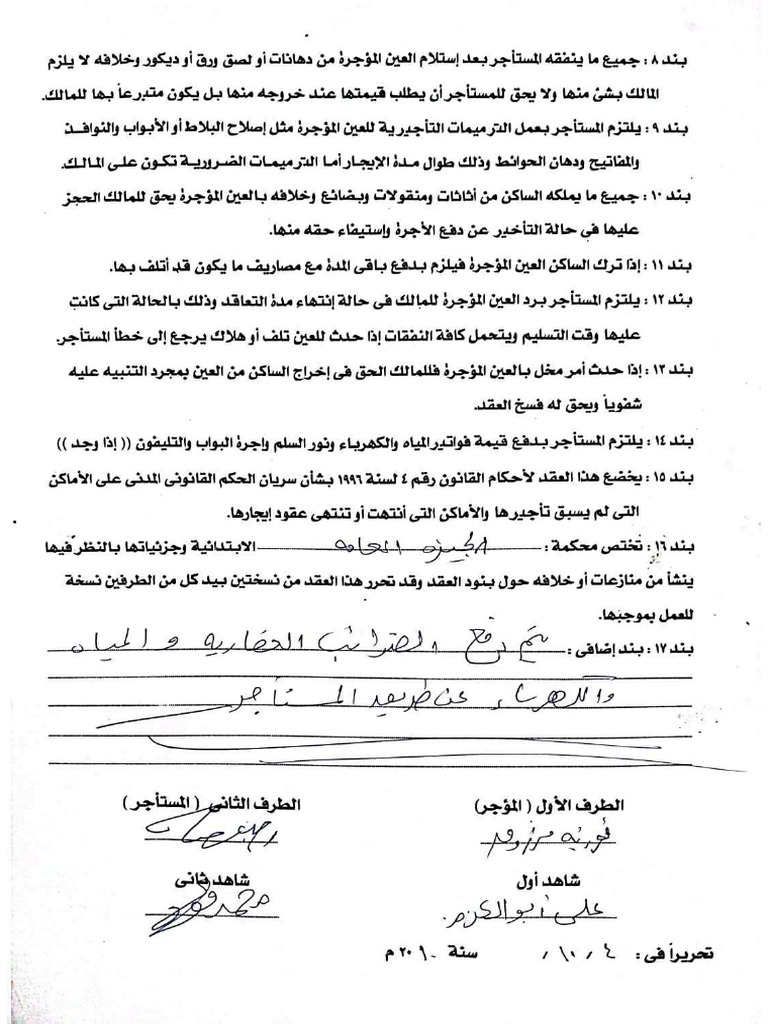 بند ٨ : جميع ما ينفقه المستأجر بعد إستلام العين المؤجرة من دهانات أو لصق ورق أو ديكور وخلافه لا يلزم
المالك بشئ منها ولا يحق للمستأجر أن يطلب قيمتها عند خروجه منها بل يكون متبرعاً بها للمالك.
بند ٩ : يلتزم المستأجر بعمل الترميمات التأجيرية للعين المؤجرة مثل إصلاح البلاط أو الأبواب والنوافذ
والمفاتيح ودهان الحوائط وذلك طوال مدة الإيجار أما الترميمات الضرورية تكون على المالك.
بند ١٠ : جميع ما يملكه الساكن من أثاثات ومنقولات وبضائع وخلافه بالعين المؤجرة يحق للمالك الحجز
عليها في حالة التأخير عن دفع الأجرة وإستيفاء حقه منها.
بند ١١ : إذا ترك الساكن العين المؤجرة فيلزم بدفع باقى المدة مع مصاريف ما يكون قد أتلف بها.
بند ١٢ : يلتزم المستأجر برد العين المؤجرة للمالك فى حالة إنتهاء مدة التعاقد وذلك بالحالة التى كانت
عليها وقت التسليم ويتحمل كافة النفقات إذا حدث للعين تلف أو هلاك يرجع إلى خطأ المستأجر.
بند ١٣ : إذا حدث أمر مخل بالعين المؤجرة فللمالك الحق فى إخراج الساكن من العين بمجرد التنبيه عليه
شفوياً ويحق له فسخ العقد.
بند ١٤ : يلتزم المستأجر بدفع قيمة فواتير المياه والكهرباء ونور السلم واجرة البواب والتليفون (( إذا وجد ))
بند ١٥ : يخضع هذا العقد لأحكام القانون رقم ٤ لسنة ١٩٩٦ بشأن سريان الحكم القانونى المدنى على الأماكن
التى لم يسبق تأجيرها والأماكن التى أنتهت أو تنتهى عقود إيجارها.
بند ١٦ : تختص محكمة : الجيزه العامه الابتدائية وجزئياتها بالنظر فيها
ينشأ من منازعات أو خلافه حول بنود العقد وقد تحرر هذا العقد من نسختين بيد كل من الطرفين نسخة
للعمل بموجبها.
بند ١٧ : بند إضافى : يتم دفع الضرائب العقاريه والمياه
والكهرباء عن طريق المستأجر
الطرف الأول ( المؤجر ) الطرف الثانى ( المستأجر )
فوزيه مرزوق
شاهد أول شاهد ثانى
على أبو الكرم محمد
تحريراً فى : ٤ / ١٠ / سنة ٢٠١٠ م